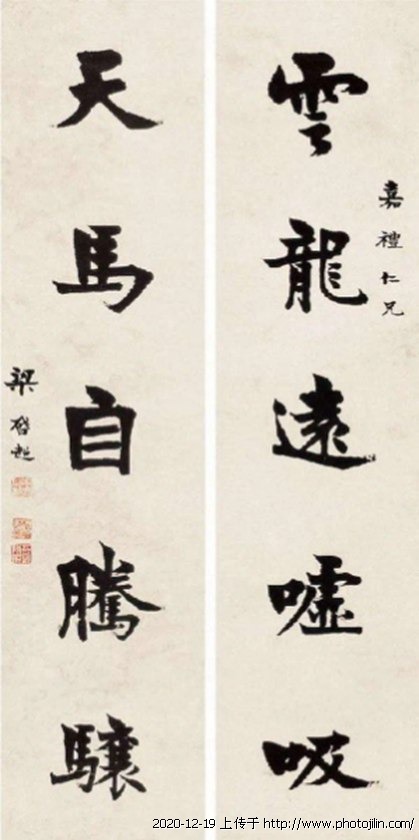 雲龍遠嘘吸
嘉禮仁兄
天馬自騰驤
梁啓超
2020-12-19 上传于 http://www.photojilin.com/